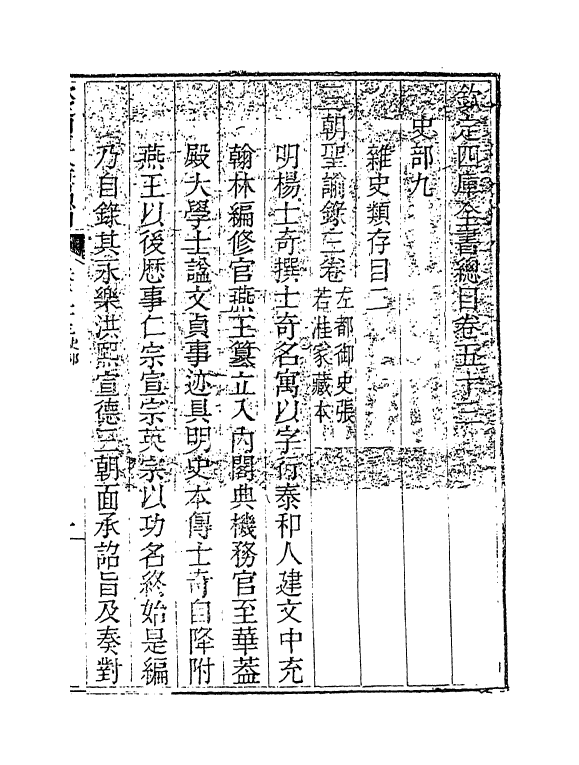 欽定四庫全書總目卷五十三
史部九
雜史類存目二
三朝聖諭錄三卷左都御史張若溎家藏本
明楊士奇撰士奇名寓以字行泰和人建文中充
翰林編修官燕王簒立入內閣典機務官至華葢
殿大學士諡文貞事迹具明史本傳士奇自降附
燕王以後歷事仁宗宣宗英宗以功名終始是編
乃自錄其永樂洪熙宣德三朝面承詔旨及奏對